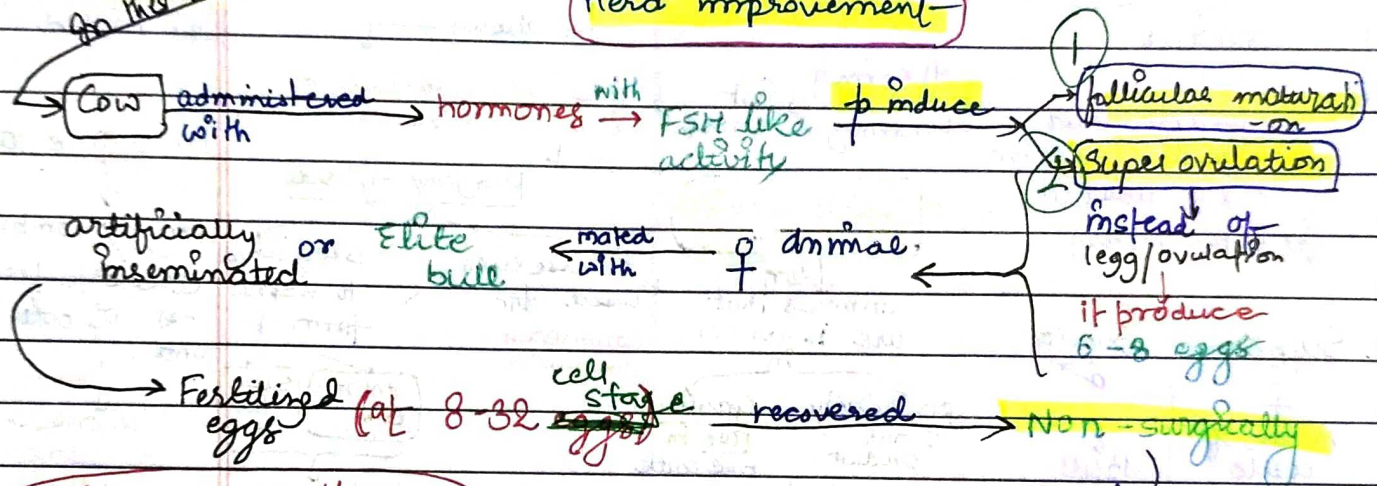 In this
Herd improvement
1
Cow administered with hormones with FSH like activity to induce folliculae maturati-on
2 Super ovulation
instead of
1egg/ovulation
it produce
6-8 eggs
artificially inseminated or Elite bull mated with ♀ animal.
Fertilized eggs (at 8-32 cell stage eggs) recovered Non-surgically